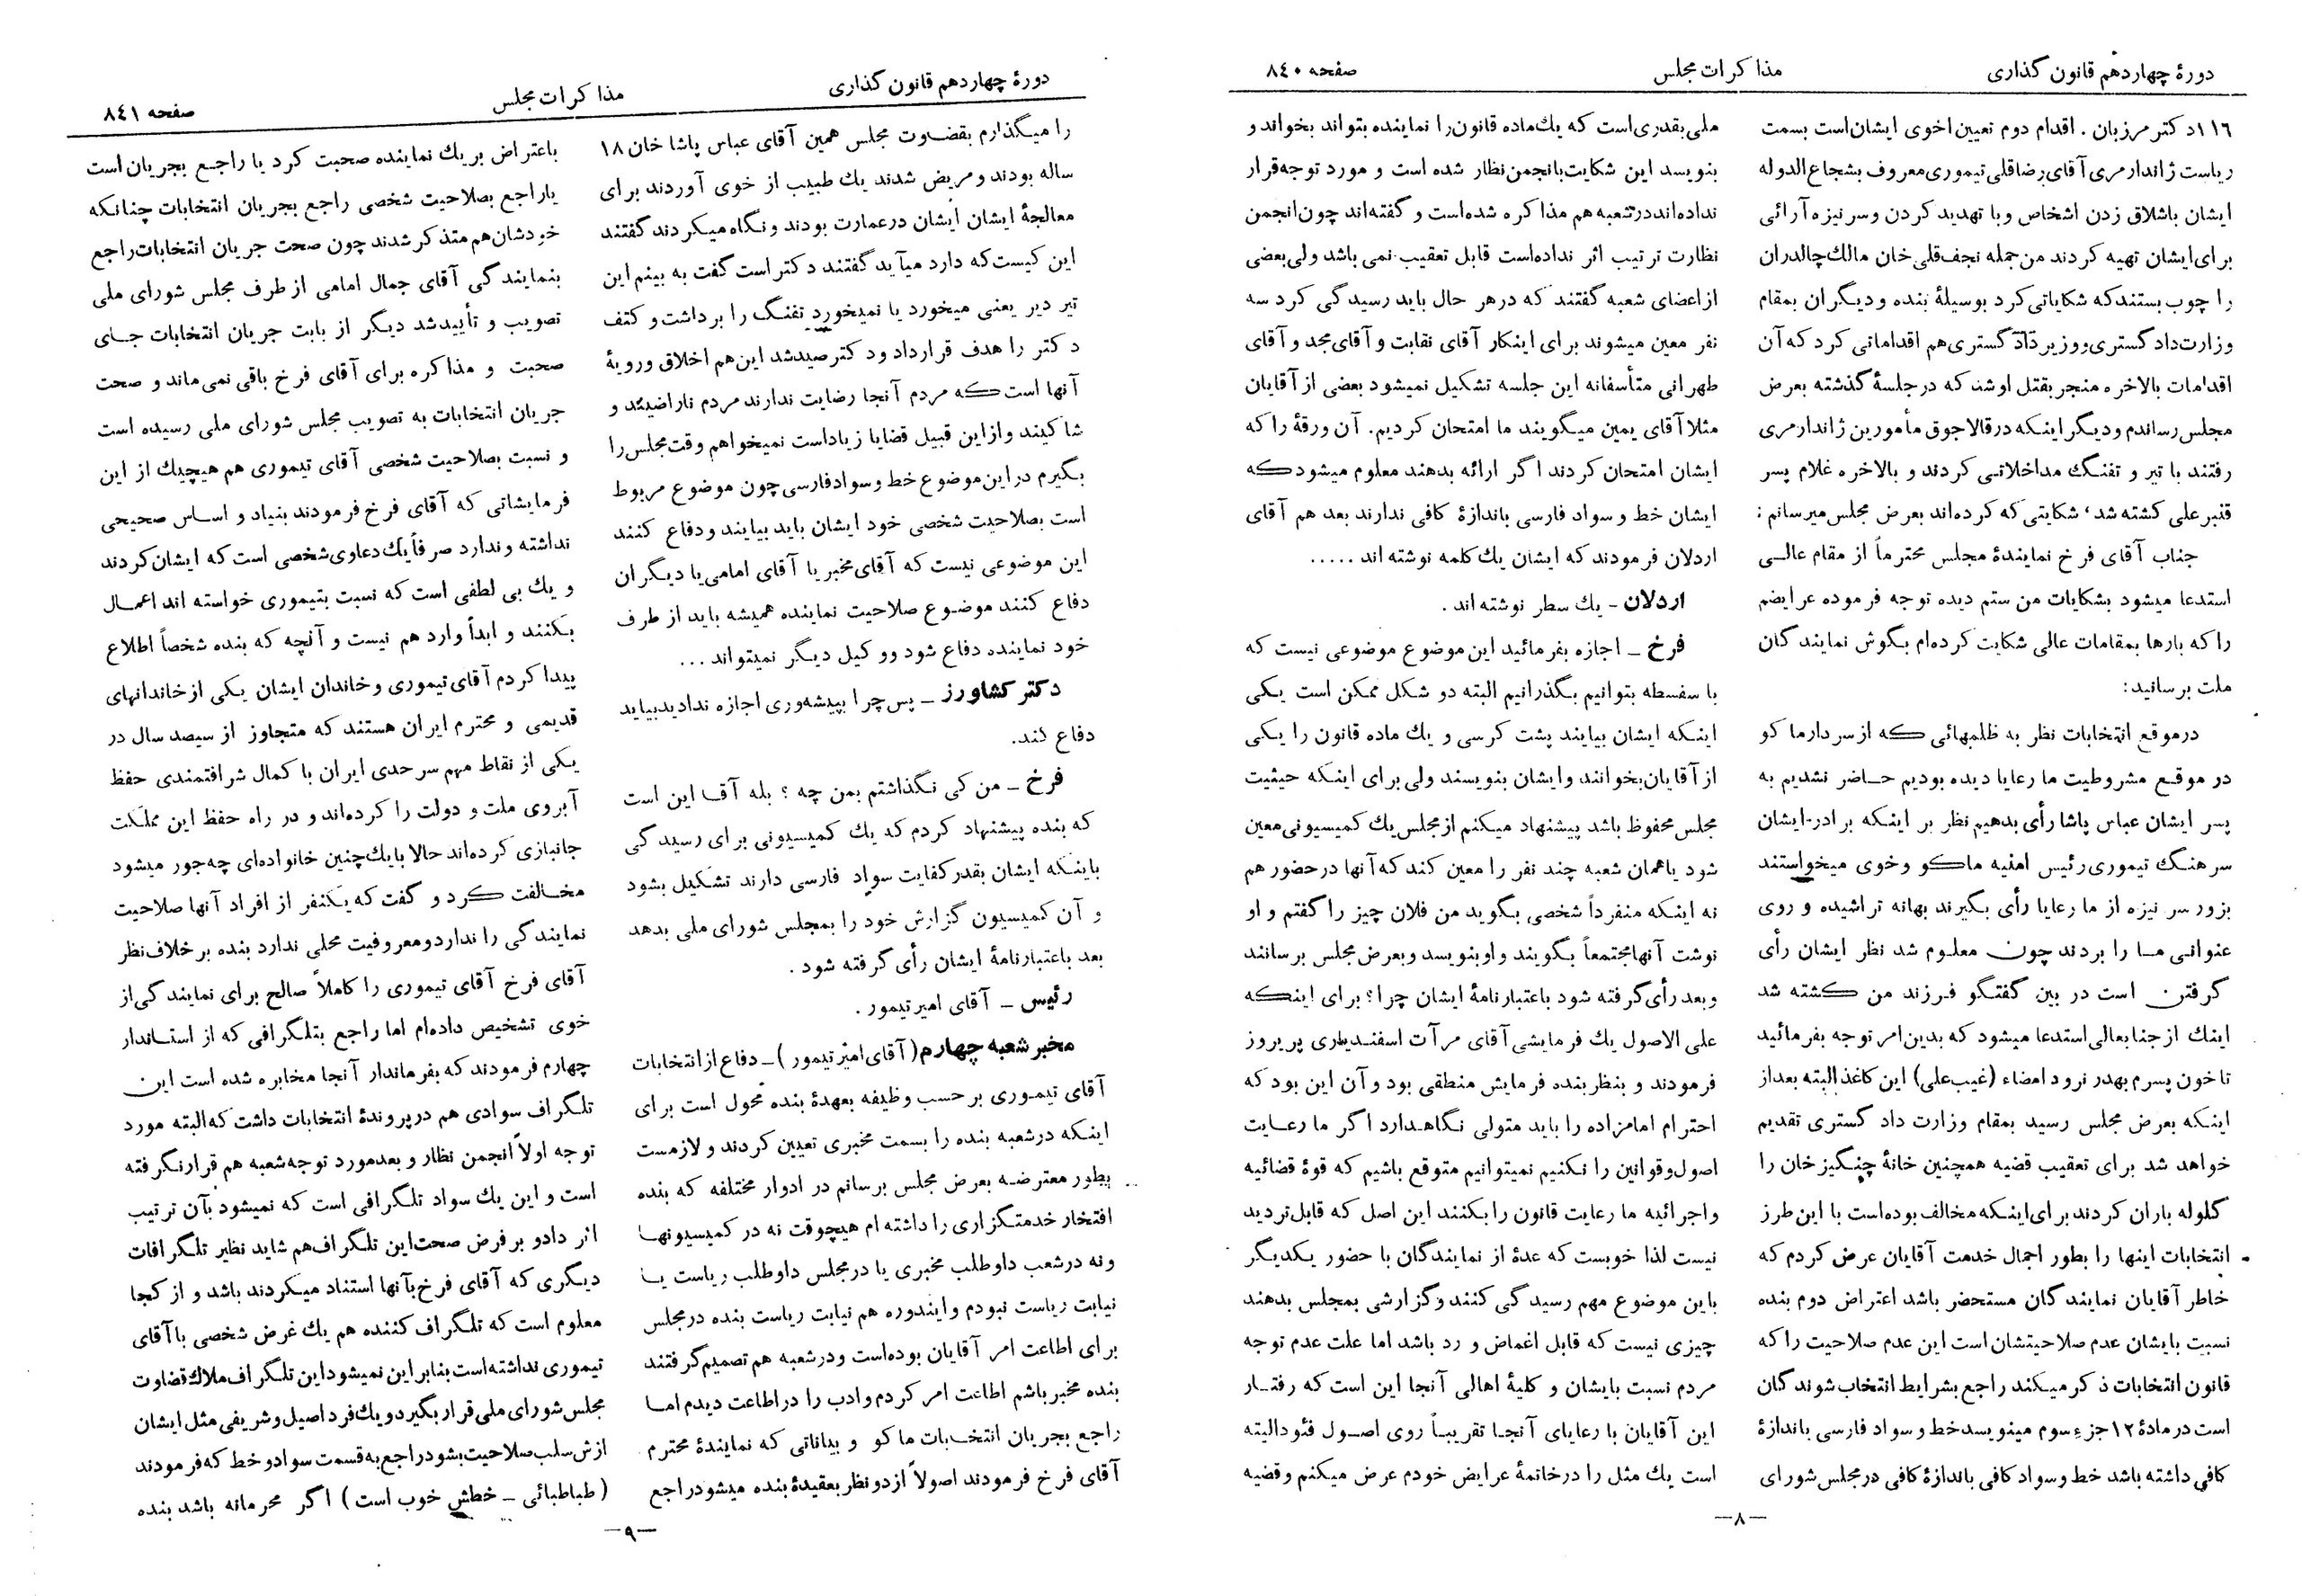 دورهٔ چهاردهم قانون گذاری
مذاکرات مجلس
صفحه ۸٤۰
۱۱٦ دکتر مرزبان . اقدام دوم تعیین اخوی ایشان است بسمت
ریاست ژاندارمری آقای رضاقلی تیموری معروف بشجاع الدوله
ایشان باشلاق زدن اشخاص و با تهدید کردن و سر نیزه آرائی
برای ایشان تهیه کردند من جمله نجف قلی خان مالك چالدران
را چوب بستند که شکایاتی کرد بوسیلهٔ بنده و دیگران بمقام
وزارت دادگستری و وزیر دادگستری هم اقداماتی کرد که آن
اقدامات بالاخره منجر بقتل او شد که در جلسهٔ گذشته بعرض
مجلس رساندم و دیگر اینکه در قالاجوق مأمورین ژاندارمری
رفتند با تیر و تفنگ مداخلاتی کردند و بالاخره غلام پسر
قنبر علی کشته شد ، شکایتی که کرده‌اند بعرض مجلس میرسانم :
جناب آقای فرخ نمایندهٔ مجلس محترماً از مقام عالی
استدعا میشود بشکایات من ستم دیده توجه فرموده عرایضم
را که بارها بمقامات عالی شکایت کرده‌ام بگوش نمایندگان
ملت برسانید:
در موقع انتخابات نظر به ظلمهائی که از سردار ماکو
در موقع مشروطیت ما رعایا دیده بودیم حاضر نشدیم به
پسر ایشان عباس پاشا رأی بدهیم نظر بر اینکه برادر-ایشان
سرهنگ تیموری رئیس امنیه ماکو و خوی میخواستند
بزور سر نیزه از ما رعایا رأی بگیرند بهانه تراشیده و روی
عنوانی ما را بردند چون معلوم شد نظر ایشان رأی
گرفتن است در بین گفتگو فرزند من کشته شد
اینك از جنابعالی استدعا میشود که بدین امر توجه بفرمائید
تا خون پسرم بهدر نرود امضاء (غیب علی) این کاغذ البته بعد از
اینکه بعرض مجلس رسید بمقام وزارت داد گستری تقدیم
خواهد شد برای تعقیب قضیه همچنین خانهٔ چنگیز خان را
گلوله باران کردند برای اینکه مخالف بوده است با این طرز
انتخابات اینها را بطور اجمال خدمت آقایان عرض کردم که
خاطر آقایان نمایندگان مستحضر باشد اعتراض دوم بنده
نسبت بایشان عدم صلاحیتشان است این عدم صلاحیت را که
قانون انتخابات ذکر میکند راجع بشرایط انتخاب شوندگان
است در مادهٔ ۱۲ جزء سوم مینویسد خط و سواد فارسی باندازهٔ
کافی داشته باشد خط و سواد کافی باندازهٔ کافی در مجلس شورای
ملی بقدری است که یك ماده قانون را نماینده بتواند بخواند و
بنویسد این شکایت بانجمن نظار شده است و مورد توجه قرار
نداده‌اند در شعبه هم مذاکره شده است و گفته‌اند چون انجمن
نظارت ترتیب اثر نداده است قابل تعقیب نمی باشد ولی بعضی
از اعضای شعبه گفتند که در هر حال باید رسیدگی کرد سه
نفر معین میشوند برای اینکار آقای نقابت و آقای مجد و آقای
طهرانی متأسفانه این جلسه تشکیل نمیشود بعضی از آقایان
مثلا آقای یمین میگویند ما امتحان کردیم. آن ورقهٔ را که
ایشان امتحان کردند اگر ارائه بدهند معلوم میشود که
ایشان خط و سواد فارسی باندازهٔ کافی ندارند بعد هم آقای
اردلان فرمودند که ایشان یك کلمه نوشته اند .....
اردلان - یك سطر نوشته اند .
فرخ ـ اجازه بفرمائید این موضوع موضوعی نیست که
با سفسطه بتوانیم بگذرانیم البته دو شکل ممکن است یکی
اینکه ایشان بیایند پشت کرسی و یك ماده قانون را یکی
از آقایان بخوانند و ایشان بنویسند ولی برای اینکه حیثیت
مجلس محفوظ باشد پیشنهاد میکنم از مجلس یك کمیسیونی معین
شود یا همان شعبه چند نفر را معین کند که آنها در حضور هم
نه اینکه منفرداً شخصی بگوید من فلان چیز را گفتم و او
نوشت آنها مجتمعاً بگویند و او بنویسد و بعرض مجلس برسانند
و بعد رأی گرفته شود باعتبارنامهٔ ایشان چرا؟ برای اینکه
علی الاصول یك فرمایشی آقای مرآت اسفندیاری پریروز
فرمودند و بنظر بنده فرمایش منطقی بود و آن این بود که
احترام امامزاده را باید متولی نگاهدارد اگر ما رعایت
اصول و قوانین را نکنیم نمیتوانیم متوقع باشیم که قوهٔ قضائیه
و اجرائیه ما رعایت قانون را بکنند این اصل که قابل تردید
نیست لذا خوبست که عدهٔ از نمایندگان با حضور یکدیگر
باین موضوع مهم رسیدگی کنند و گزارشی بمجلس بدهند
چیزی نیست که قابل اغماض و رد باشد اما علت عدم توجه
مردم نسبت بایشان و کلیهٔ اهالی آنجا این است که رفتار
این آقایان با رعایای آنجا تقریباً روی اصول فئودالیته
است یك مثل را در خاتمهٔ عرایض خودم عرض میکنم و قضیه
—۸—
دورهٔ چهاردهم قانون گذاری
مذاکرات مجلس
صفحه ۸٤۱
را میگذارم بقضاوت مجلس همین آقای عباس پاشا خان ۱۸
ساله بودند و مریض شدند یك طبیب از خوی آوردند برای
معالجهٔ ایشان ایشان در عمارت بودند و نگاه میکردند گفتند
این کیست که دارد میآید گفتند دکتر است گفت به بینم این
تیر دیر یعنی میخورد یا نمیخورد تفنگ را برداشت و کتف
دکتر را هدف قرار داد و دکتر صید شد این هم اخلاق و رویهٔ
آنها است که مردم آنجا رضایت ندارند مردم ناراضیند و
شاکیند و از این قبیل قضایا زیاد است نمیخواهم وقت مجلس را
بگیرم در این موضوع خط و سواد فارسی چون موضوع مربوط
است بصلاحیت شخصی خود ایشان باید بیایند و دفاع کنند
این موضوعی نیست که آقای مخبر یا آقای امامی یا دیگران
دفاع کنند موضوع صلاحیت نماینده همیشه باید از طرف
خود نماینده دفاع شود و وکیل دیگر نمیتواند ...
دکتر کشاورز ـ پس چرا بپیشه‌وری اجازه ندادید بیاید
دفاع کند.
فرخ ـ من کی نگذاشتم بمن چه ؟ بله آقا این است
که بنده پیشنهاد کردم که یك کمیسیونی برای رسیدگی
باینکه ایشان بقدر کفایت سواد فارسی دارند تشکیل بشود
و آن کمیسیون گزارش خود را بمجلس شورای ملی بدهد
بعد باعتبارنامهٔ ایشان رأی گرفته شود .
رئیس ـ آقای امیر تیمور .
مخبر شعبه چهارم (آقای امیر تیمور) ـ دفاع از انتخابات
آقای تیموری بر حسب وظیفه بعهدهٔ بنده محول است برای
اینکه در شعبه بنده را بسمت مخبری تعیین کردند و لازمست
بطور معترضه بعرض مجلس برسانم در ادوار مختلفه که بنده
افتخار خدمتگزاری را داشته ام هیچوقت نه در کمیسیونها
و نه در شعب داوطلب مخبری یا در مجلس داوطلب ریاست یا
نیابت ریاست نبودم و ایندوره هم نیابت ریاست بنده در مجلس
برای اطاعت امر آقایان بوده است و در شعبه هم تصمیم گرفتند
بنده مخبر باشم اطاعت امر کردم و ادب را در اطاعت دیدم اما
راجع بجریان انتخابات ماکو و بیاناتی که نمایندهٔ محترم
آقای فرخ فرمودند اصولاً از دو نظر بعقیدهٔ بنده میشود راجع
باعتراض بریك نماینده صحبت کرد یا راجع بجریان است
یا راجع بصلاحیت شخصی راجع بجریان انتخابات چنانکه
خودشان هم متذکر شدند چون صحت جریان انتخابات راجع
بنمایندگی آقای جمال امامی از طرف مجلس شورای ملی
تصویب و تأیید شد دیگر از بابت جریان انتخابات جای
صحبت و مذاکره برای آقای فرخ باقی نمی ماند و صحت
جریان انتخابات به تصویب مجلس شورای ملی رسیده است
و نسبت بصلاحیت شخصی آقای تیموری هم هیچیك از این
فرمایشاتی که آقای فرخ فرمودند بنیاد و اساس صحیحی
نداشته و ندارد صرفاً یك دعاوی شخصی است که ایشان کردند
و یك بی لطفی است که نسبت بتیموری خواسته اند اعمال
بکنند و ابداً وارد هم نیست و آنچه که بنده شخصاً اطلاع
پیدا کردم آقای تیموری و خاندان ایشان یکی از خاندانهای
قدیمی و محترم ایران هستند که متجاوز از سیصد سال در
یکی از نقاط مهم سرحدی ایران با کمال شرافتمندی حفظ
آبروی ملت و دولت را کرده‌اند و در راه حفظ این مملکت
جانبازی کرده‌اند حالا با یك چنین خانواده‌ای چه جور میشود
مخالفت کرد و گفت که یکنفر از افراد آنها صلاحیت
نمایندگی را ندارد و معروفیت محلی ندارد بنده بر خلاف نظر
آقای فرخ آقای تیموری را کاملاً صالح برای نمایندگی از
خوی تشخیص داده‌ام اما راجع بتلگرافی که از استاندار
چهارم فرمودند که بفرماندار آنجا مخابره شده است این
تلگراف سوادی هم در پروندهٔ انتخابات داشت که البته مورد
توجه اولاً انجمن نظار و بعد مورد توجه شعبه هم قرار نگرفته
است و این یك سواد تلگرافی است که نمیشود بآن ترتیب
اثر داد و بر فرض صحت این تلگراف هم شاید نظیر تلگرافات
دیگری که آقای فرخ بآنها استناد میکردند باشد و از کجا
معلوم است که تلگراف کننده هم یك غرض شخصی با آقای
تیموری نداشته است بنابراین نمیشود این تلگراف ملاك قضاوت
مجلس شورای ملی قرار بگیرد و یك فرد اصیل و شریفی مثل ایشان
ازش سلب صلاحیت بشود راجع به قسمت سواد و خط که فرمودند
( طباطبائی ـ خطش خوب است ) اگر محرمانه باشد بنده
—۹—